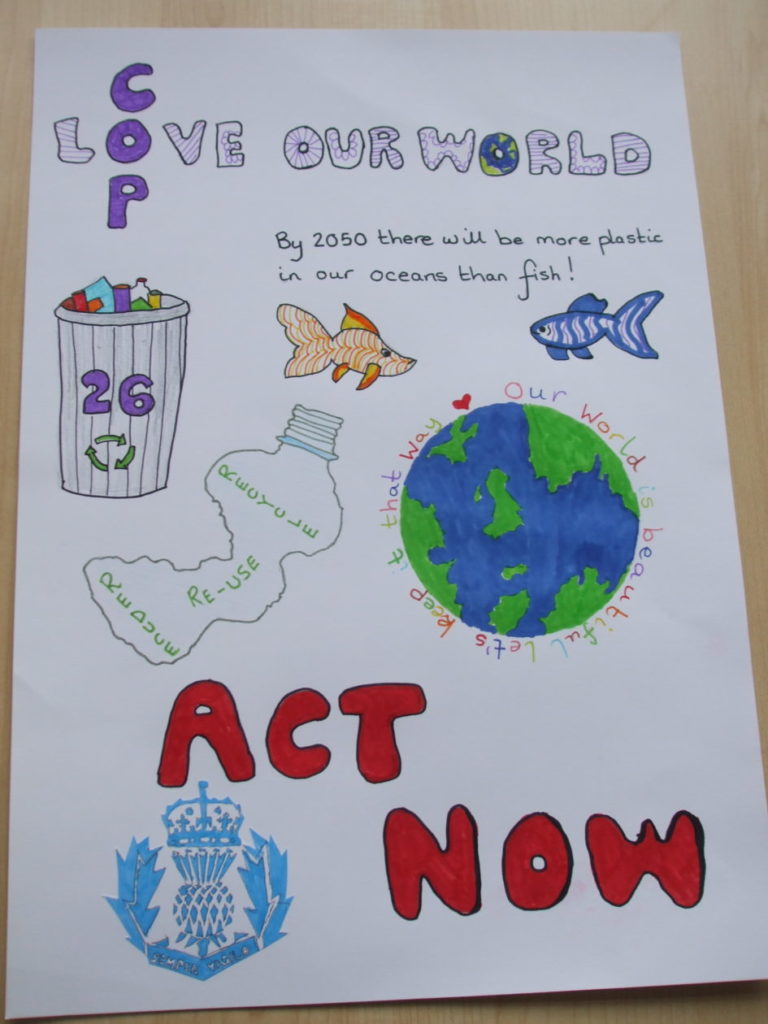 COP
LOVE OUR WORLD
By 2050 there will be more plastic
in our oceans than fish!
26
Our World is beautiful let's keep it that way
RECYCLE
RE-USE
REDUCE
ACT
NOW
SEMPER VIGILO